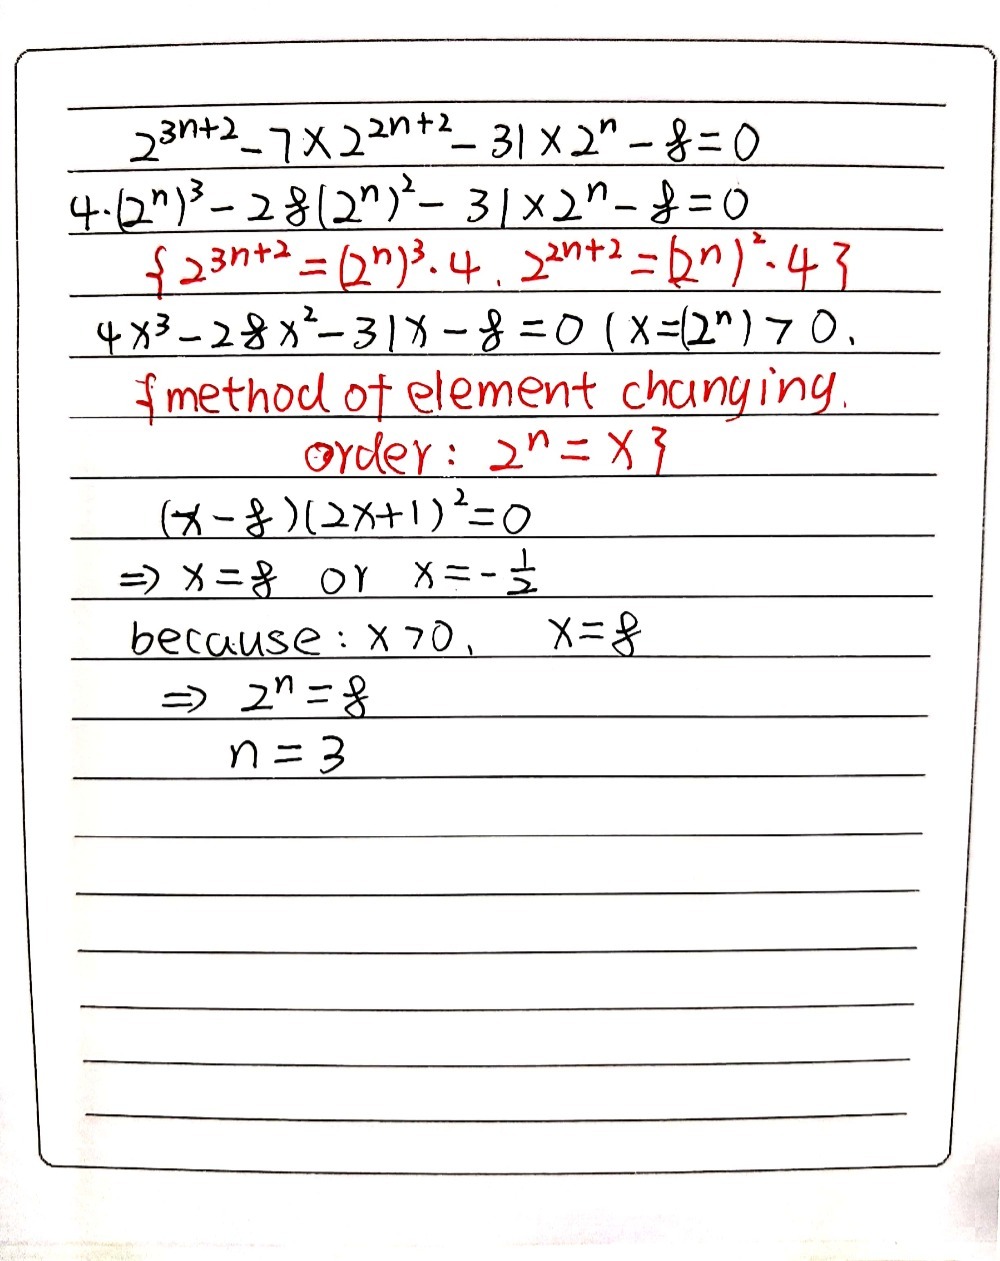 2³ⁿ⁺² - 7 × 2²ⁿ⁺² - 31 × 2ⁿ - 8 = 0
4·(2ⁿ)³ - 28(2ⁿ)² - 31 × 2ⁿ - 8 = 0
{2³ⁿ⁺² = (2ⁿ)³·4, 2²ⁿ⁺² = (2ⁿ)²·4}
4x³ - 28x² - 31x - 8 = 0 (x=(2ⁿ) > 0,
{method of element changing.
order: 2ⁿ = x}
(x-8)(2x+1)² = 0
⇒ x = 8 or x = -1/2
because: x > 0, x = 8
⇒ 2ⁿ = 8
n = 3